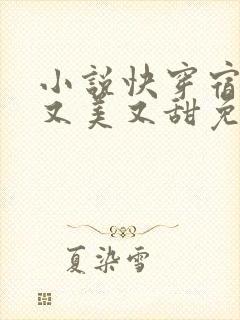 小說快穿宿
又美又甜免
夏染雪